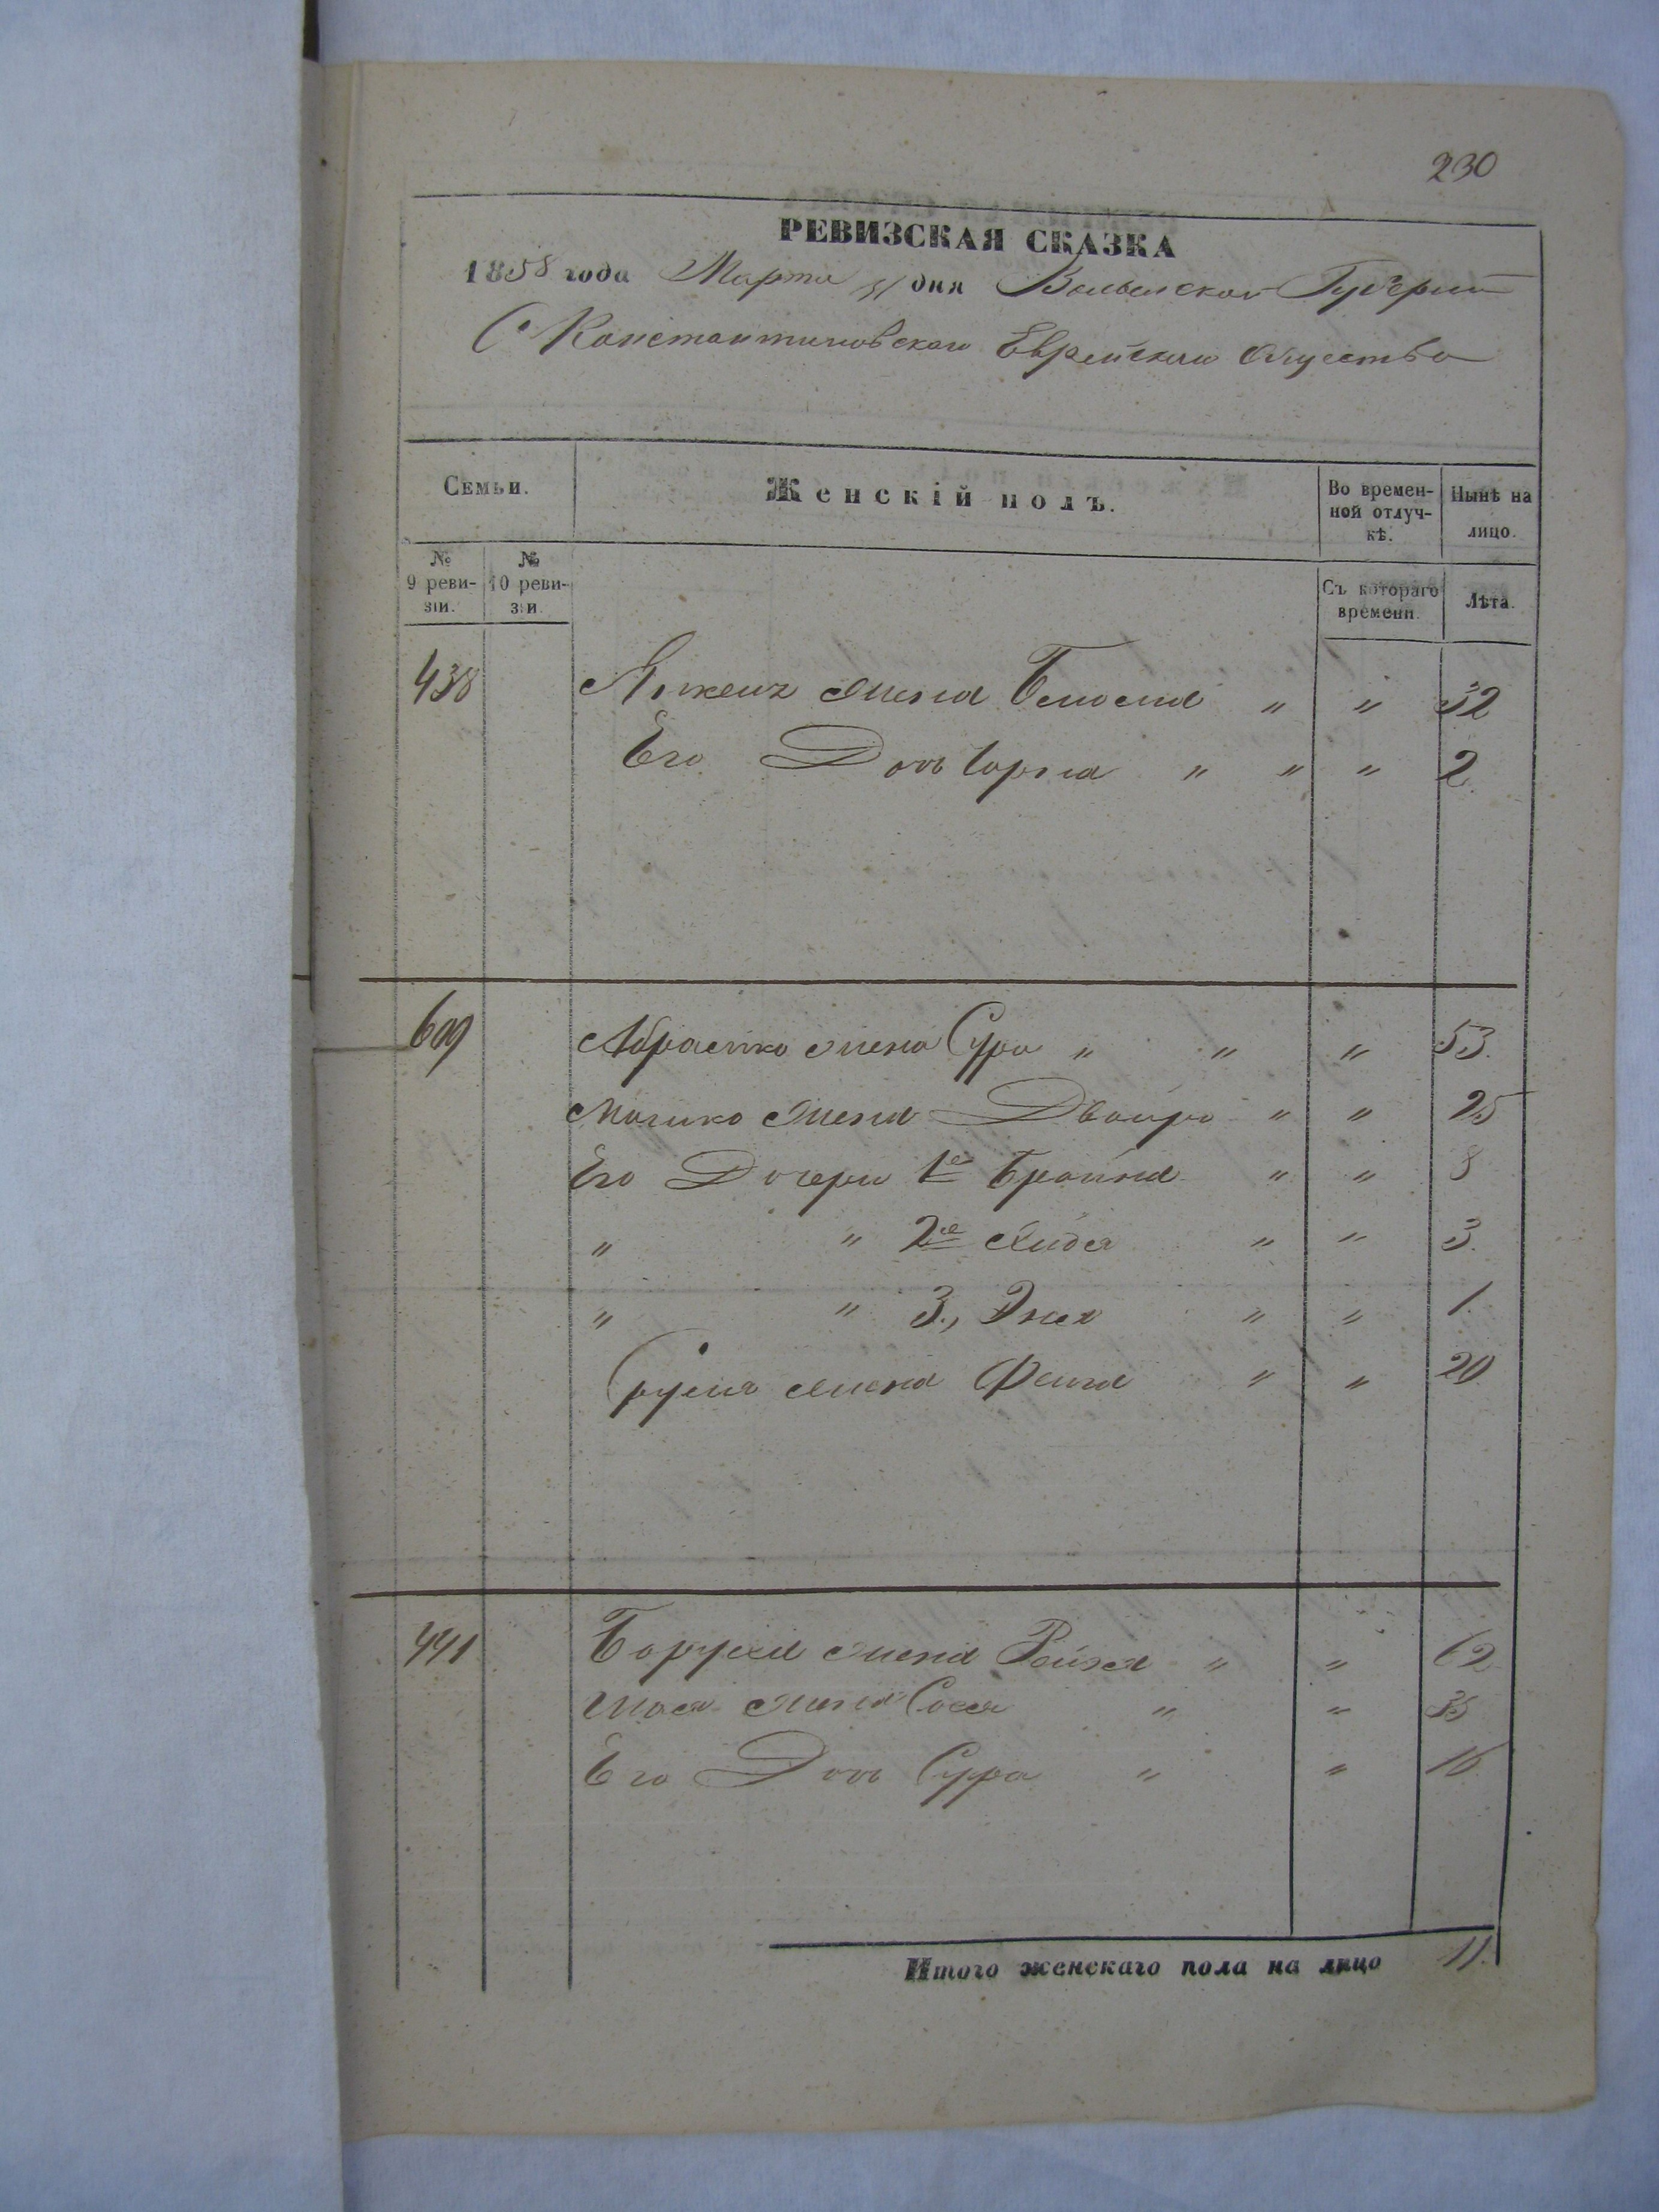 230
РЕВИЗСКАЯ СКАЗКА
1858 года Марта 31 дня Волынской Губерніи
С Константиновскаго Еврейскаго Общества
Семьи. Женскій полъ. Во времен-ной отлуч-кѣ. Нынѣ на лицо.
№ 9 реви-зіи. № 10 реви-зіи. Съ котораго времени. Лѣта.
438 жена " " 32
Его Дочь " " " 2
609 Абрамко жена Сура " " " 53.
Мошко жена Двойра " " 25
Его Дочери 1е Брайна " " 8
" " 2е " " 3.
" " 3., " " 1.
Сруля жена Фейга " " 20
441 жена Рейзя " " 62
жена Сося " " 35
Его Дочь Сура " " 16
Итого женскаго пола на лицо 11.